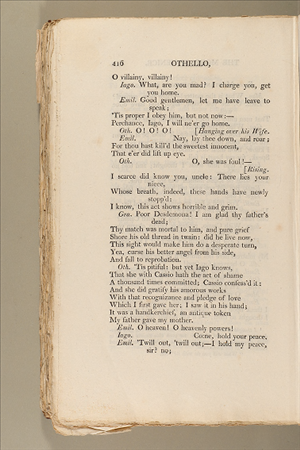 416 OTHELLO,
O villainy, villainy!
Iago. What, are you mad? I charge you, get
you home.
Emil. Good gentlemen, let me have leave to
speak;
'Tis proper I obey him, but not now:—
Perchance, Iago, I will ne'er go home.
Oth. O! O! O! [Hanging over his Wife.
Emil. Nay, lay thee down, and roar;
For thou hast kill'd the sweetest innocent,
That e'er did lift up eye.
Oth. O, she was foul!—
[Rising.
I scarce did know you, uncle: There lies your
niece,
Whose breath, indeed, these hands have newly
stopp'd:
I know, this act shows horrible and grim.
Gra. Poor Desdemona! I am glad thy father's
dead;
Thy match was mortal to him, and pure grief
Shore his old thread in twain: did he live now,
This sight would make him do a desperate turn,
Yea, curse his better angel from his side,
And fall to reprobation.
Oth. 'Tis pitiful: but yet Iago knows,
That she with Cassio hath the act of shame
A thousand times committed; Cassio confess'd it:
And she did gratify his amorous works
With that recognizance and pledge of love
Which I first gave her; I saw it in his hand;
It was a handkerchief, an antique token
My father gave my mother.
Emil. O heaven! O heavenly powers!
Iago. Come, hold your peace.
Emil. 'Twill out, 'twill out:—I hold my peace,
sir? no;